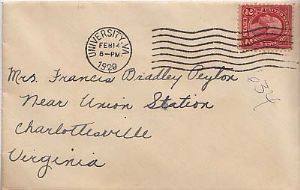 UNIVERSITY, VA.
FEB 14
8-PM
1929
Mrs. Francis Bradley Peyton
Near Union Station
Charlottesville
Virginia